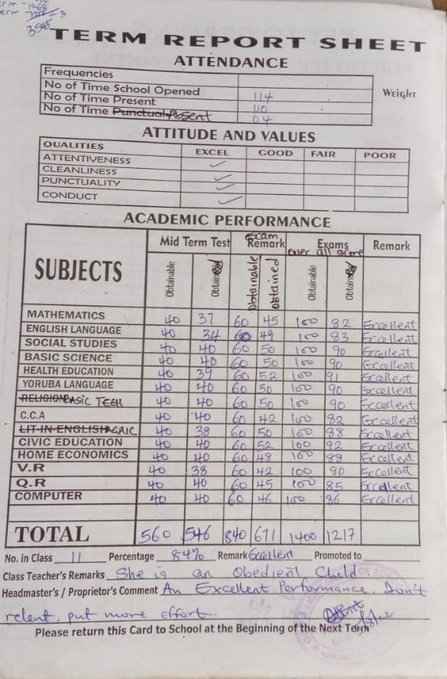 TERM REPORT SHEET
ATTENDANCE
Frequencies
No of Time School Opened 114
Weight
No of Time Present 110
No of Time Punctual Absent 04
ATTITUDE AND VALUES
QUALITIES EXCEL GOOD FAIR POOR
ATTENTIVENESS
CLEANLINESS
PUNCTUALITY
CONDUCT
ACADEMIC PERFORMANCE
SUBJECTS Mid Term Test Exam Remark Exams over all score Remark
Obtainable Obtained Obtainable Obtained Obtainable Obtained
MATHEMATICS 40 37 60 45 100 82 Excellent
ENGLISH LANGUAGE 40 34 60 49 100 83 Excellent
SOCIAL STUDIES 40 40 60 50 100 90 Excellent
BASIC SCIENCE 40 40 60 50 100 90 Excellent
HEALTH EDUCATION 40 39 60 52 100 91 Excellent
YORUBA LANGUAGE 40 40 60 50 100 90 Excellent
RELIGION BASIC TECH 40 40 60 50 100 90 Excellent
C.C.A 40 40 60 42 100 82 Excellent
LIT-IN-ENGLISH AGRIC 40 38 60 50 100 88 Excellent
CIVIC EDUCATION 40 40 60 52 100 92 Excellent
HOME ECONOMICS 40 40 60 49 100 89 Excellent
V.R 40 38 60 42 100 80 Excellent
Q.R 40 40 60 45 100 85 Excellent
COMPUTER 40 40 60 46 100 86 Excellent
TOTAL 560 546 840 671 1400 1217
No. in Class 11 Percentage 84% Remark Excellent Promoted to
Class Teacher's Remarks She is an Obedient Child
Headmaster's / Proprietor's Comment An Excellent Performance. Don't
relent, put more effort.
Please return this Card to School at the Beginning of the Next Term